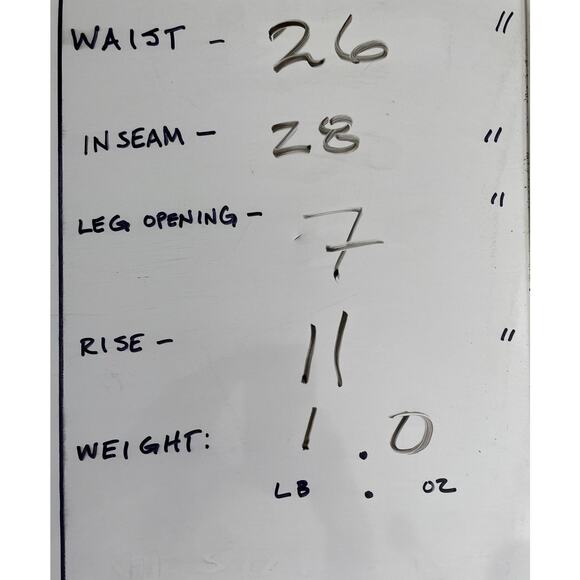 WAIST - 26 "
INSEAM - 28 "
LEG OPENING - 7 "
RISE - 11 "
WEIGHT: 1 . 0
LB . OZ